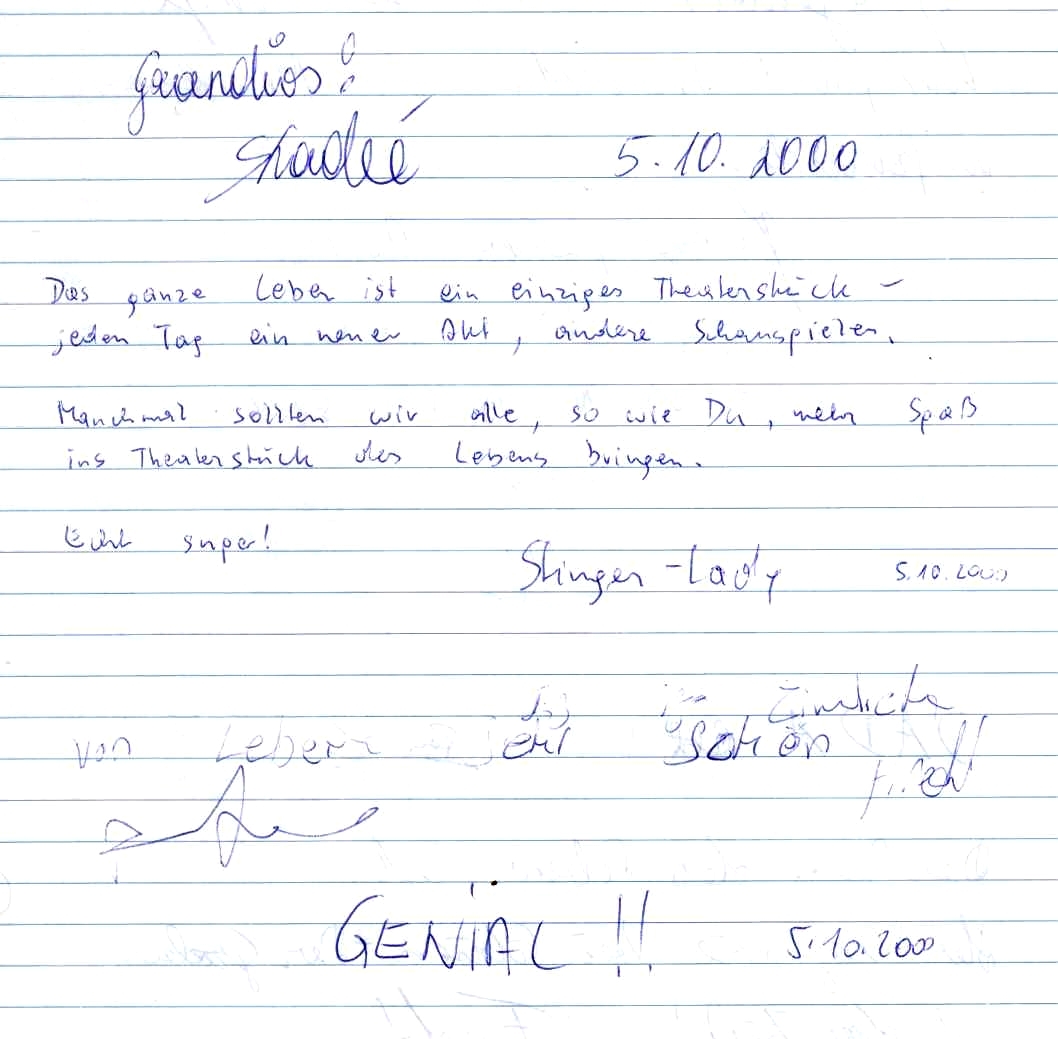 Grandios!
5.10.2000
Das ganze Leben ist ein einziges Theaterstück –
jeden Tag ein neuer Akt, andere Schauspieler.
Manchmal sollten wir alle, so wie Du, mehr Spaß
ins Theaterstück des Lebens bringen.
Echt super!
Stinger-Lady 5.10.2000
von Leben schön
GENIAL!! 5.10.2000